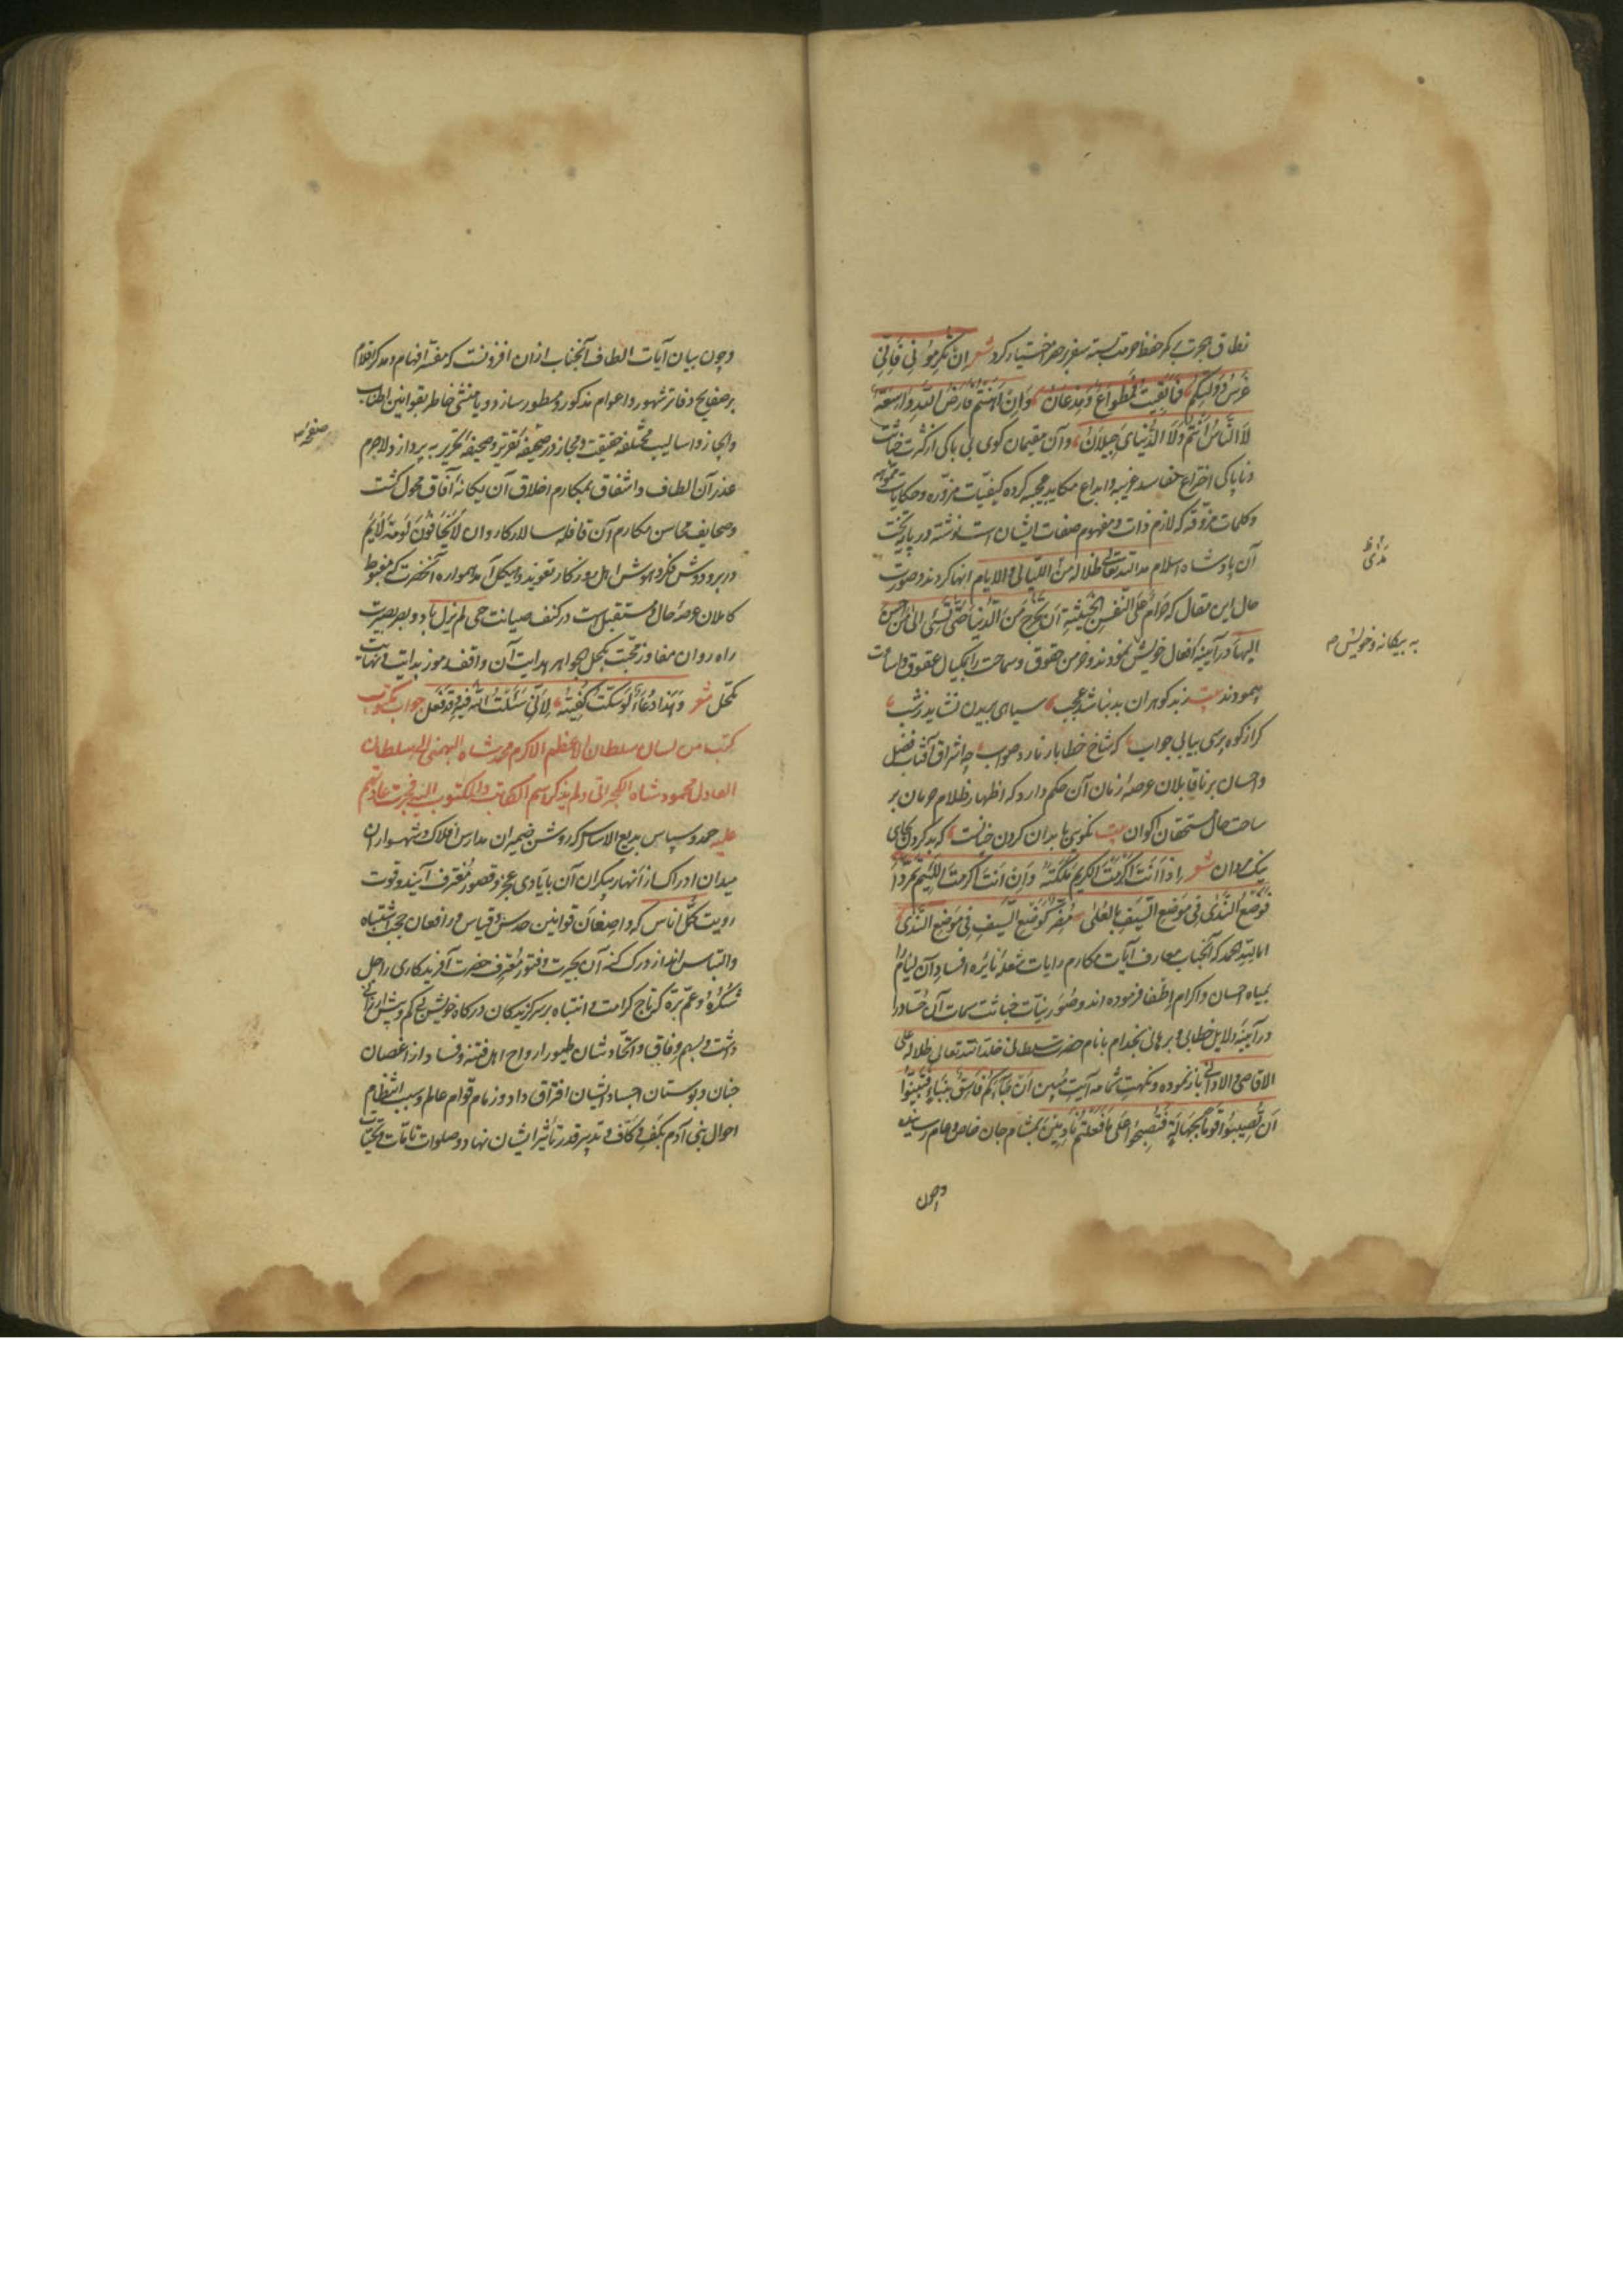 نطاق هجرت بر کمر حفظ حرمت بسته سفر بر حضر اختیار کرد شعر ان تکرمونی فانی
غرس دولتکم فما بقیت فمطواع ومذعان وان اهنتم فارض الله واسعة
لا الناس انتم ولا الدنیا خراسان وآن مقیمان کوی بی باکی از کثرت خباثت
وناپاکی اختراع مفاسد غریبه وابداع مکاید عجیبه کرده کیفیات مزوره وحکایات مموهه
وکلمات مزوقه که لازم ذات ومفهوم صفات ایشان است نوشته در پایتخت
آن پادشاه اسلام مد الله تعالی ظلاله من اللیالی والایام انها کردند وصورت
حال این مقال که حرام علی النفس الخبیثة ان تخرج من الدنیا حتی تسئ الی من احسن
الیها در آیینه افعال خویش نمودند وخرمن حقوق وسماحت را بمکیال عقوق واساءت
پیمودند بیت ز بد کوهران بد نباشد عجب سیاهی بریدن نشاید ز شب
کر از کوه پرسی بیابی جواب که شاخ خطا بار نارد صواب چه اشراق آفتاب فضل
واحسان بر ناقابلان عرصه زمان آن حکم دارد که اظهار ظلام حرمان بر
ساحت حال مستحقان اکوان بیت نکویی با بدان کردن خیانت که بد کردن بجای
نیک مردان شعر اذا انت اکرمت الکریم ملکته وان انت اکرمت اللئیم تمردا
فوضع الندی فی موضع السیف بالعلی مضر کوضع السیف فی موضع الندی
اما لله الحمد که آنجناب معارف آیات مکارم رایات شعله نایره افساد آن لیام را
بمیاه احسان واکرام اطفا فرموده اند وصور نیات خباثت سمات آن حساد را
در آیینه دلایل خطابی وبرهانی بخدام بانام حضرت سلطانی خلد الله تعالی ظلاله علی
الاقاصی والادانی باز نموده ونکهت شمامه آیت مبین ان جاءکم فاسق بنباء فتبینوا
ان تصیبوا قوما بجهالة فتصبحوا علی ما فعلتم نادمین بمشام جان خاص وعام رسانیده
وچون
به بیکانه وخویش م
وچون بیان آیات الطاف آنجناب ازان افزونست که مفسر افهام ومذکر اقلام
بر صفایح دفاتر شهور واعوام مذکور ومسطور سازد ویا منشی خاطر بقوانین اطناب
وایجاز واسالیب مختلفه حقیقت ومجاز در صحیفه تقریر وصحیفه تحریر به پردازد لاجرم
عذر آن الطاف واشفاق بمکارم اخلاق آن یکانه آفاق محول کشت
وصحایف محاسن مکارم آن قافله سالار کاروان لا یخافون لومة لایم
در بر ودوش فکر وهوش اهل روزکار تعویذ وهیکل آمد همواره آنحضرت که مغبوط
کاملان عرصه حال ومستقبل است در کنف صیانت حی لم یزل باد وبصر بصیرت
راه روان مفاوز محبت بکحل جواهر هدایت آن واقف رموز بدایت ونهایت
مکحل شعر وهذا دعاء لو سکت کفیته لانی سئلت الله فیه وقد فعل جواب مکتوب
کتب من لسان سلطان الاعظم الاکرم محمد شاه البهمنی الی سلطان
العادل محمود شاه الکجراتی ولم یذکر اسم الکاتب والمکتوب الیه فجرت عادتهم
علیه حمد وسپاس بدیع الاساس که روشن ضمیران مدارس افلاک وشهسواران
میدان ادراک از انهار بیکران آن بایادی عجز وقصور مغترف آیند وقوت
رویت کل اناس که واصفان قوانین حدس وقیاس ورافعان حجب اشتباه
والتباس اند از درک کنه آن بحیرت وفتور معترف حضرت آفریدکاری را جل
شکره وعم بره که تاج کرامت وانتباه بر سر کزیدکان درکاه خویش بی کم وبیش ارزانی
داشت وبسهم وفاق واتحاد شان طیور ارواح اهل فتنه وفساد از اغصان
جنان وبوستان اجساد ایشان افتراق داد وزمام قوام عالم وسبب انتظام
احوال بنی آدم بکف کاف وتدبیر قدر تاثیر ایشان نهاد وصلوات تامات وتحیات
صفحه